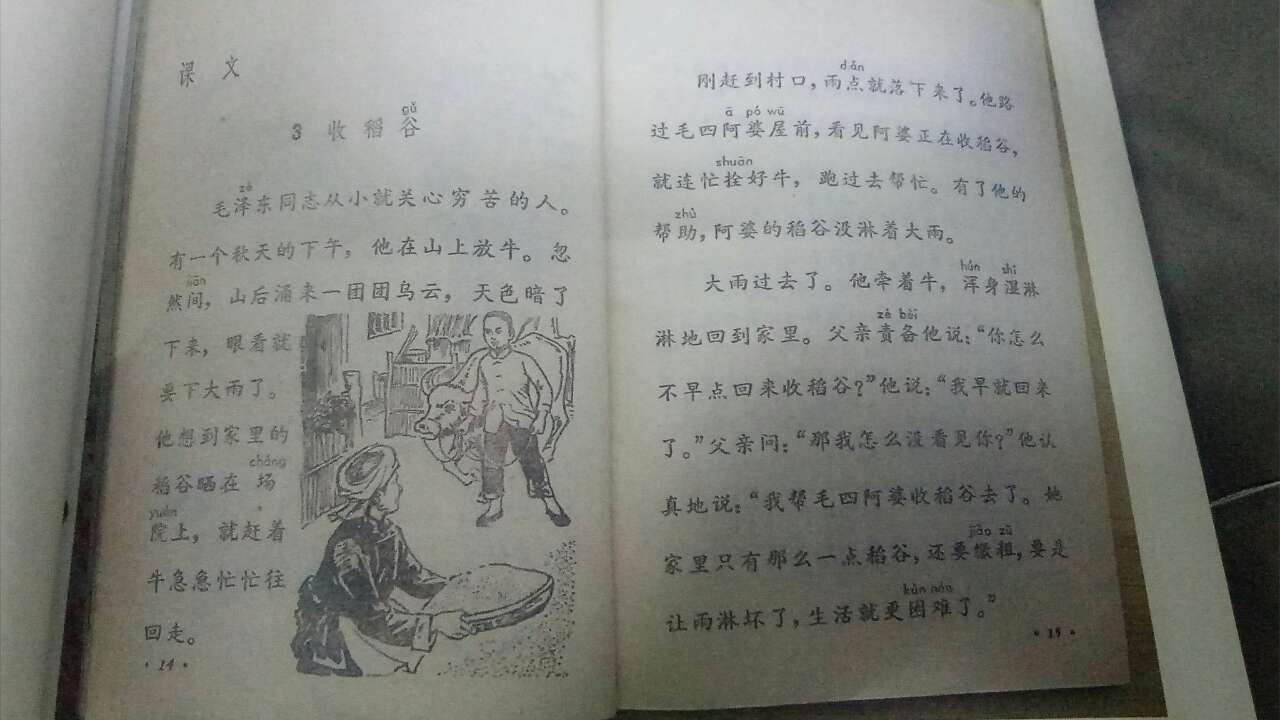 课文
gǔ
3 收稻谷
zé
毛泽东同志从小就关心穷苦的人。
有一个秋天的下午，他在山上放牛。忽
jiān
然间，山后涌来一团团乌云，天色暗了
下来，眼看就
要下大雨了。
他想到家里的
cháng
稻谷晒在场
yuàn
院上，就赶着
牛急急忙忙往
回走。
·14·
diǎn
刚赶到村口，雨点就落下来了。他路
ā pó wū
过毛四阿婆屋前，看见阿婆正在收稻谷，
shuān
就连忙拴好牛，跑过去帮忙。有了他的
zhù
帮助，阿婆的稻谷没淋着大雨。
hún shī
大雨过去了。他牵着牛，浑身湿淋
zé bèi
淋地回到家里。父亲责备他说：“你怎么
不早点回来收稻谷？”他说：“我早就回来
了。”父亲问：“那我怎么没看见你？”他认
真地说：“我帮毛四阿婆收稻谷去了。她
jiāo zū
家里只有那么一点稻谷，还要缴租，要是
kùn nán
让雨淋坏了，生活就更困难了。”
·15·